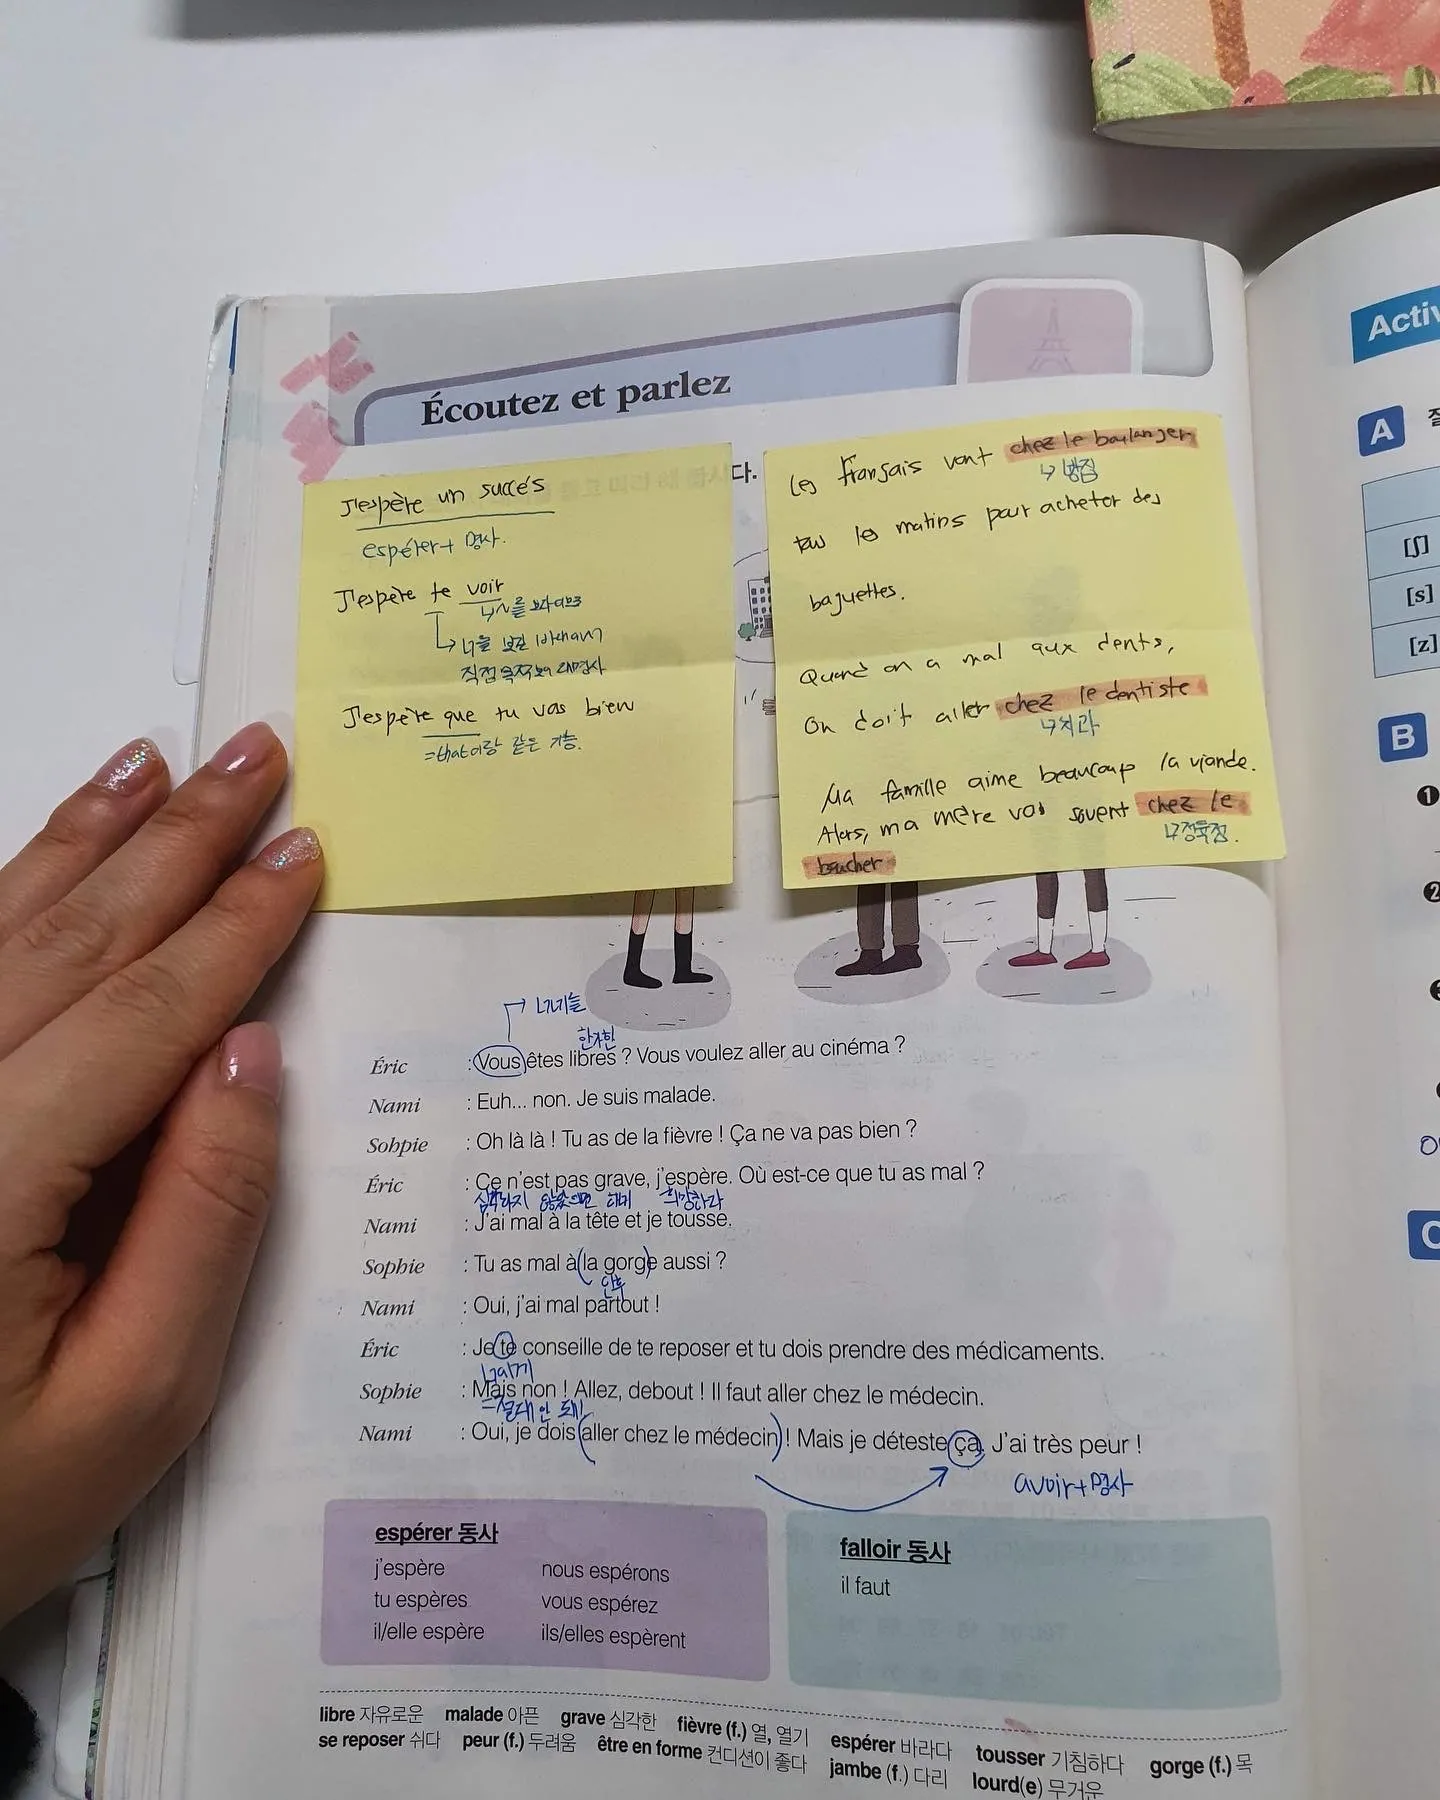 Écoutez et parlez
다.
J'espère un succés
espérer + 명사.
J'espère te voir
직접목적보어 대명사
J'espère que tu vas bien
= that이랑 같은 기능.
Les français vont chez le boulanger
↳ 빵집
tous les matins pour acheter des
baguettes.
Quand on a mal aux dents,
On doit aller chez le dentiste
↳ 치과
Ma famille aime beaucoup la viande.
Alors, ma mère vas souvent chez le
↳ 정육점.
boucher
Éric : Vous êtes libres ? Vous voulez aller au cinéma ?
Nami : Euh... non. Je suis malade.
Sohpie : Oh là là ! Tu as de la fièvre ! Ça ne va pas bien ?
Éric : Ce n'est pas grave, j'espère. Où est-ce que tu as mal ?
심각하지 않았으면 희망하다
Nami : J'ai mal à la tête et je tousse.
Sophie : Tu as mal à (la gorge) aussi ?
Nami : Oui, j'ai mal partout !
Éric : Je te conseille de te reposer et tu dois prendre des médicaments.
너에게
Sophie : Mais non ! Allez, debout ! Il faut aller chez le médecin.
= 절대 안 돼
Nami : Oui, je dois (aller chez le médecin) ! Mais je déteste ça. J'ai très peur !
avoir + 명사
espérer 동사
j'espère nous espérons
tu espères vous espérez
il/elle espère ils/elles espèrent
falloir 동사
il faut
libre 자유로운 malade 아픈 grave 심각한 fièvre (f.) 열, 열기 espérer 바라다 tousser 기침하다 gorge (f.) 목
se reposer 쉬다 peur (f.) 두려움 être en forme 컨디션이 좋다 jambe (f.) 다리 lourd(e) 무거운
Activ
A
[ʃ]
[s]
[z]
B
1
2
C